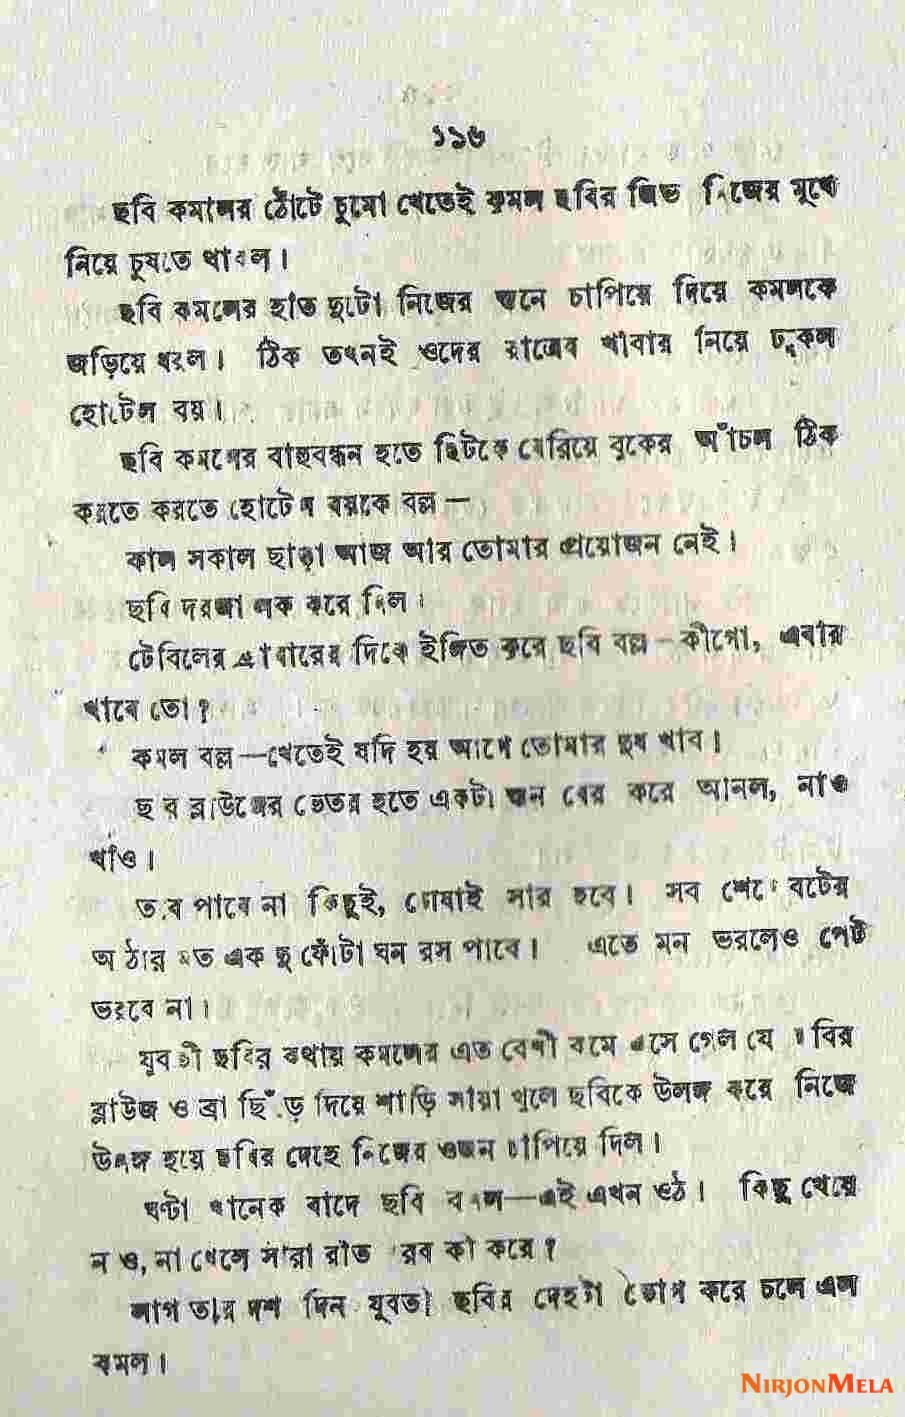 ১১৬
ছবি কমলের ঠোঁটে চুমো খেতেই কমল ছবির জিভ নিজের মুখে
নিয়ে চুষতে থাকল।
ছবি কমলের হাত দুটো নিজের স্তনে চাপিয়ে দিয়ে কমলকে
জড়িয়ে ধরল। ঠিক তখনই ওদের রাতের খাবার নিয়ে ঢুকল
হোটেল বয়।
ছবি কমলের বাহুবন্ধন হতে ছিটকে বেরিয়ে বুকের আঁচল ঠিক
করতে করতে হোটেল বয়কে বল্ল—
কাল সকাল ছাড়া আজ আর তোমার প্রয়োজন নেই।
ছবি দরজা লক করে দিল।
টেবিলের খাবারের দিকে ইঙ্গিত করে ছবি বল্ল—কীগো, এবার
খাবে তো?
কমল বল্ল—খেতেই যদি হয় আগে তোমার দুধ খাব।
ছবি ব্লাউজের ভেতর হতে একটা স্তন বের করে আনল, নাও
খাও।
তবে পাবে না কিছুই, চোষাই সার হবে। সব শেষে বটের
আঠার মত এক দু ফোঁটা ঘন রস পাবে। এতে মন ভরলেও পেট
ভরবে না।
যুবতী ছবির কথায় কমলের এত বেশী কামে এসে গেল যে ছবির
ব্লাউজ ও ব্রা ছিঁড়ে দিয়ে শাড়ি সায়া খুলে ছবিকে উলঙ্গ করে নিজে
উলঙ্গ হয়ে ছবির দেহে নিজের ওজন চাপিয়ে দিল।
ঘণ্টা খানেক বাদে ছবি বলল—এই এখন ওঠ। কিছু খেয়ে
নাও, না খেলে সারা রাত করব কী করে?
লাগাতার দশ দিন যুবতী ছবির দেহটা ভোগ করে চলে এল
কমল।
NIRJONMELA